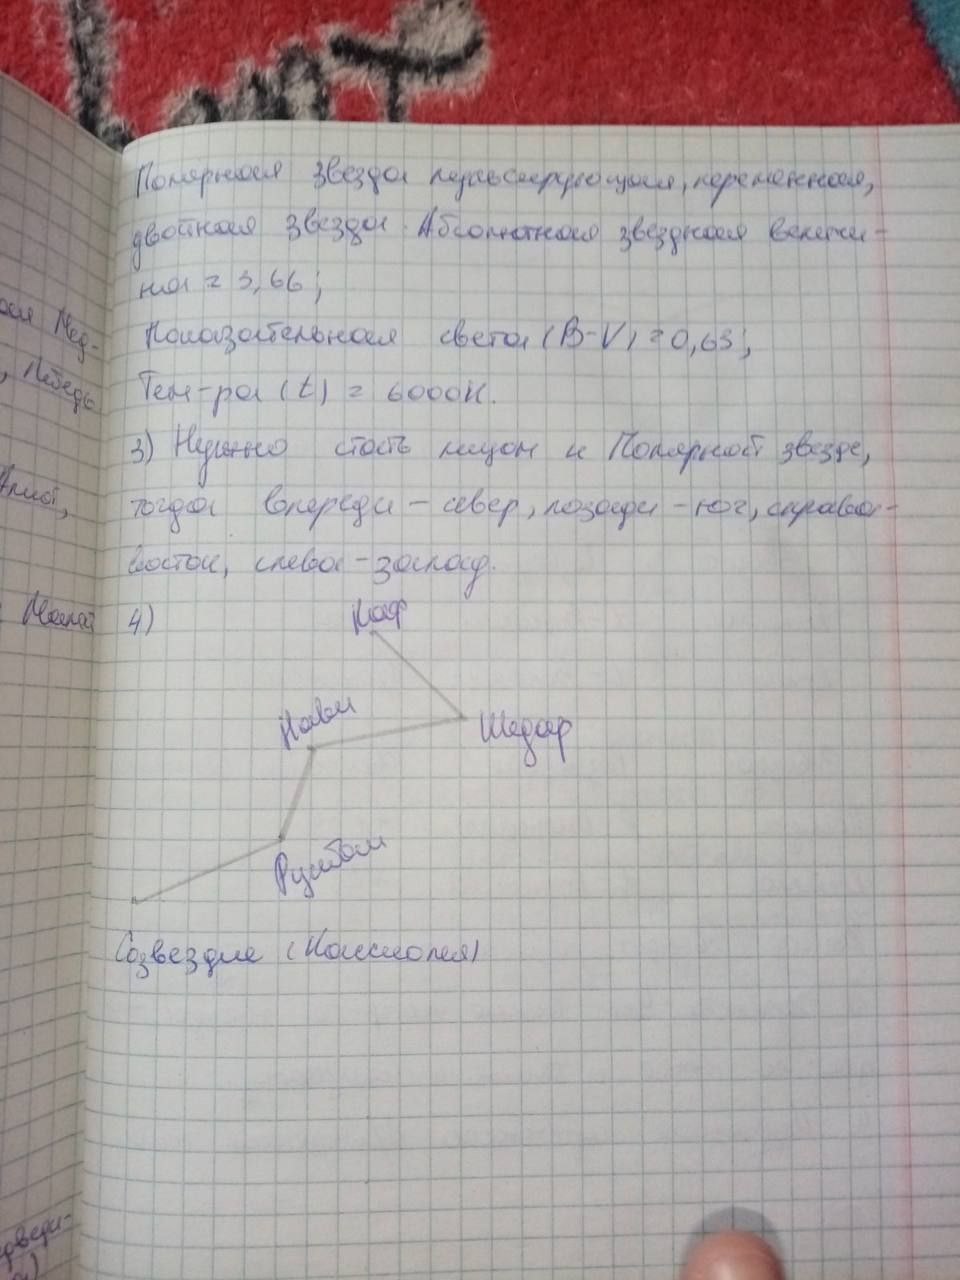 Полярная звезда пульсирующая, переменная,
двойная звезда. Абсолютная звездная величи-
на = 3,66;
Показательная света (B-V) = 0,63;
Тем-ра (t) = 6000К.
3) Нужно стать лицом к Полярной звезде,
тогда впереди - север, позади - юг, справа -
восток, слева - запад.
4)
Каф
Нави
Шедар
Рукбах
Созвездие (Кассиопея)
ая Мед-
, Лебедь